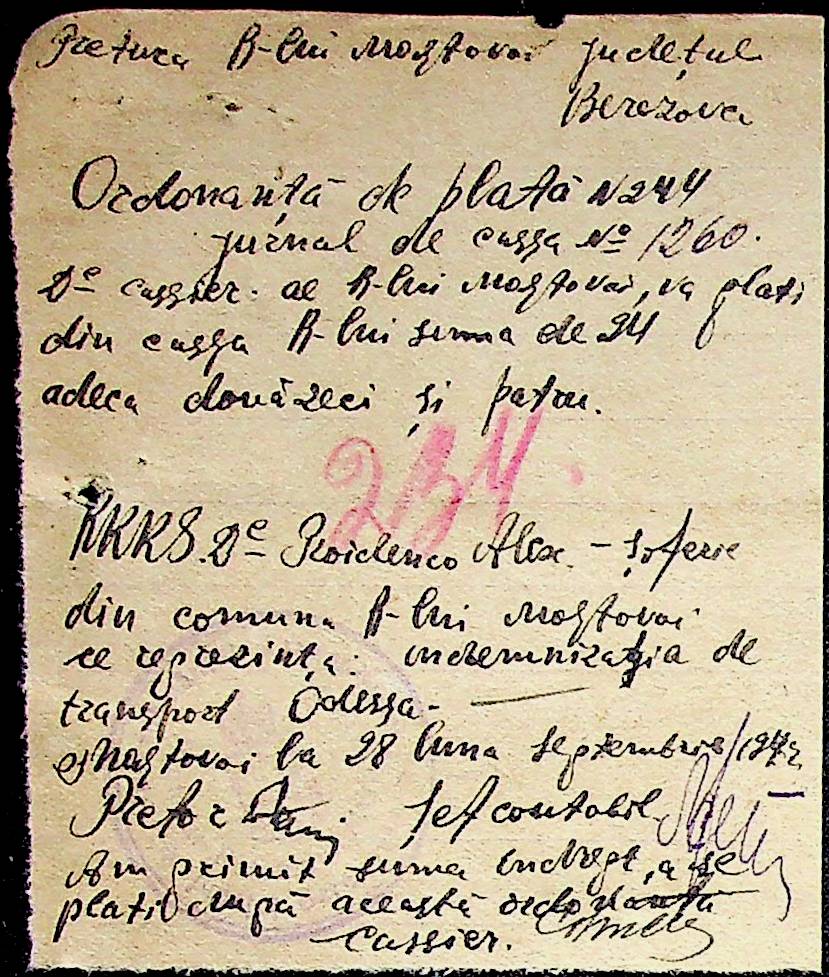 Pretura R-lui Mostovoi județul
Berezovca
Ordonanță de plată N 244
jurnal de cassa № 1260.
Dl cassier al R-lui Mostovoi, va plati
din cassa R-lui suma de 24
adeca douăzeci și patru.
234.
RKKS. Dl Alex. – șoferie
din comuna R-lui Mostovoi
ce reprezintă indemnizația de
transport Odessa –
Mostovoi la 28 luna septembrie 1942
Pretor șef contabil
Am primit suma a se
plati după această ordonanță
cassier.